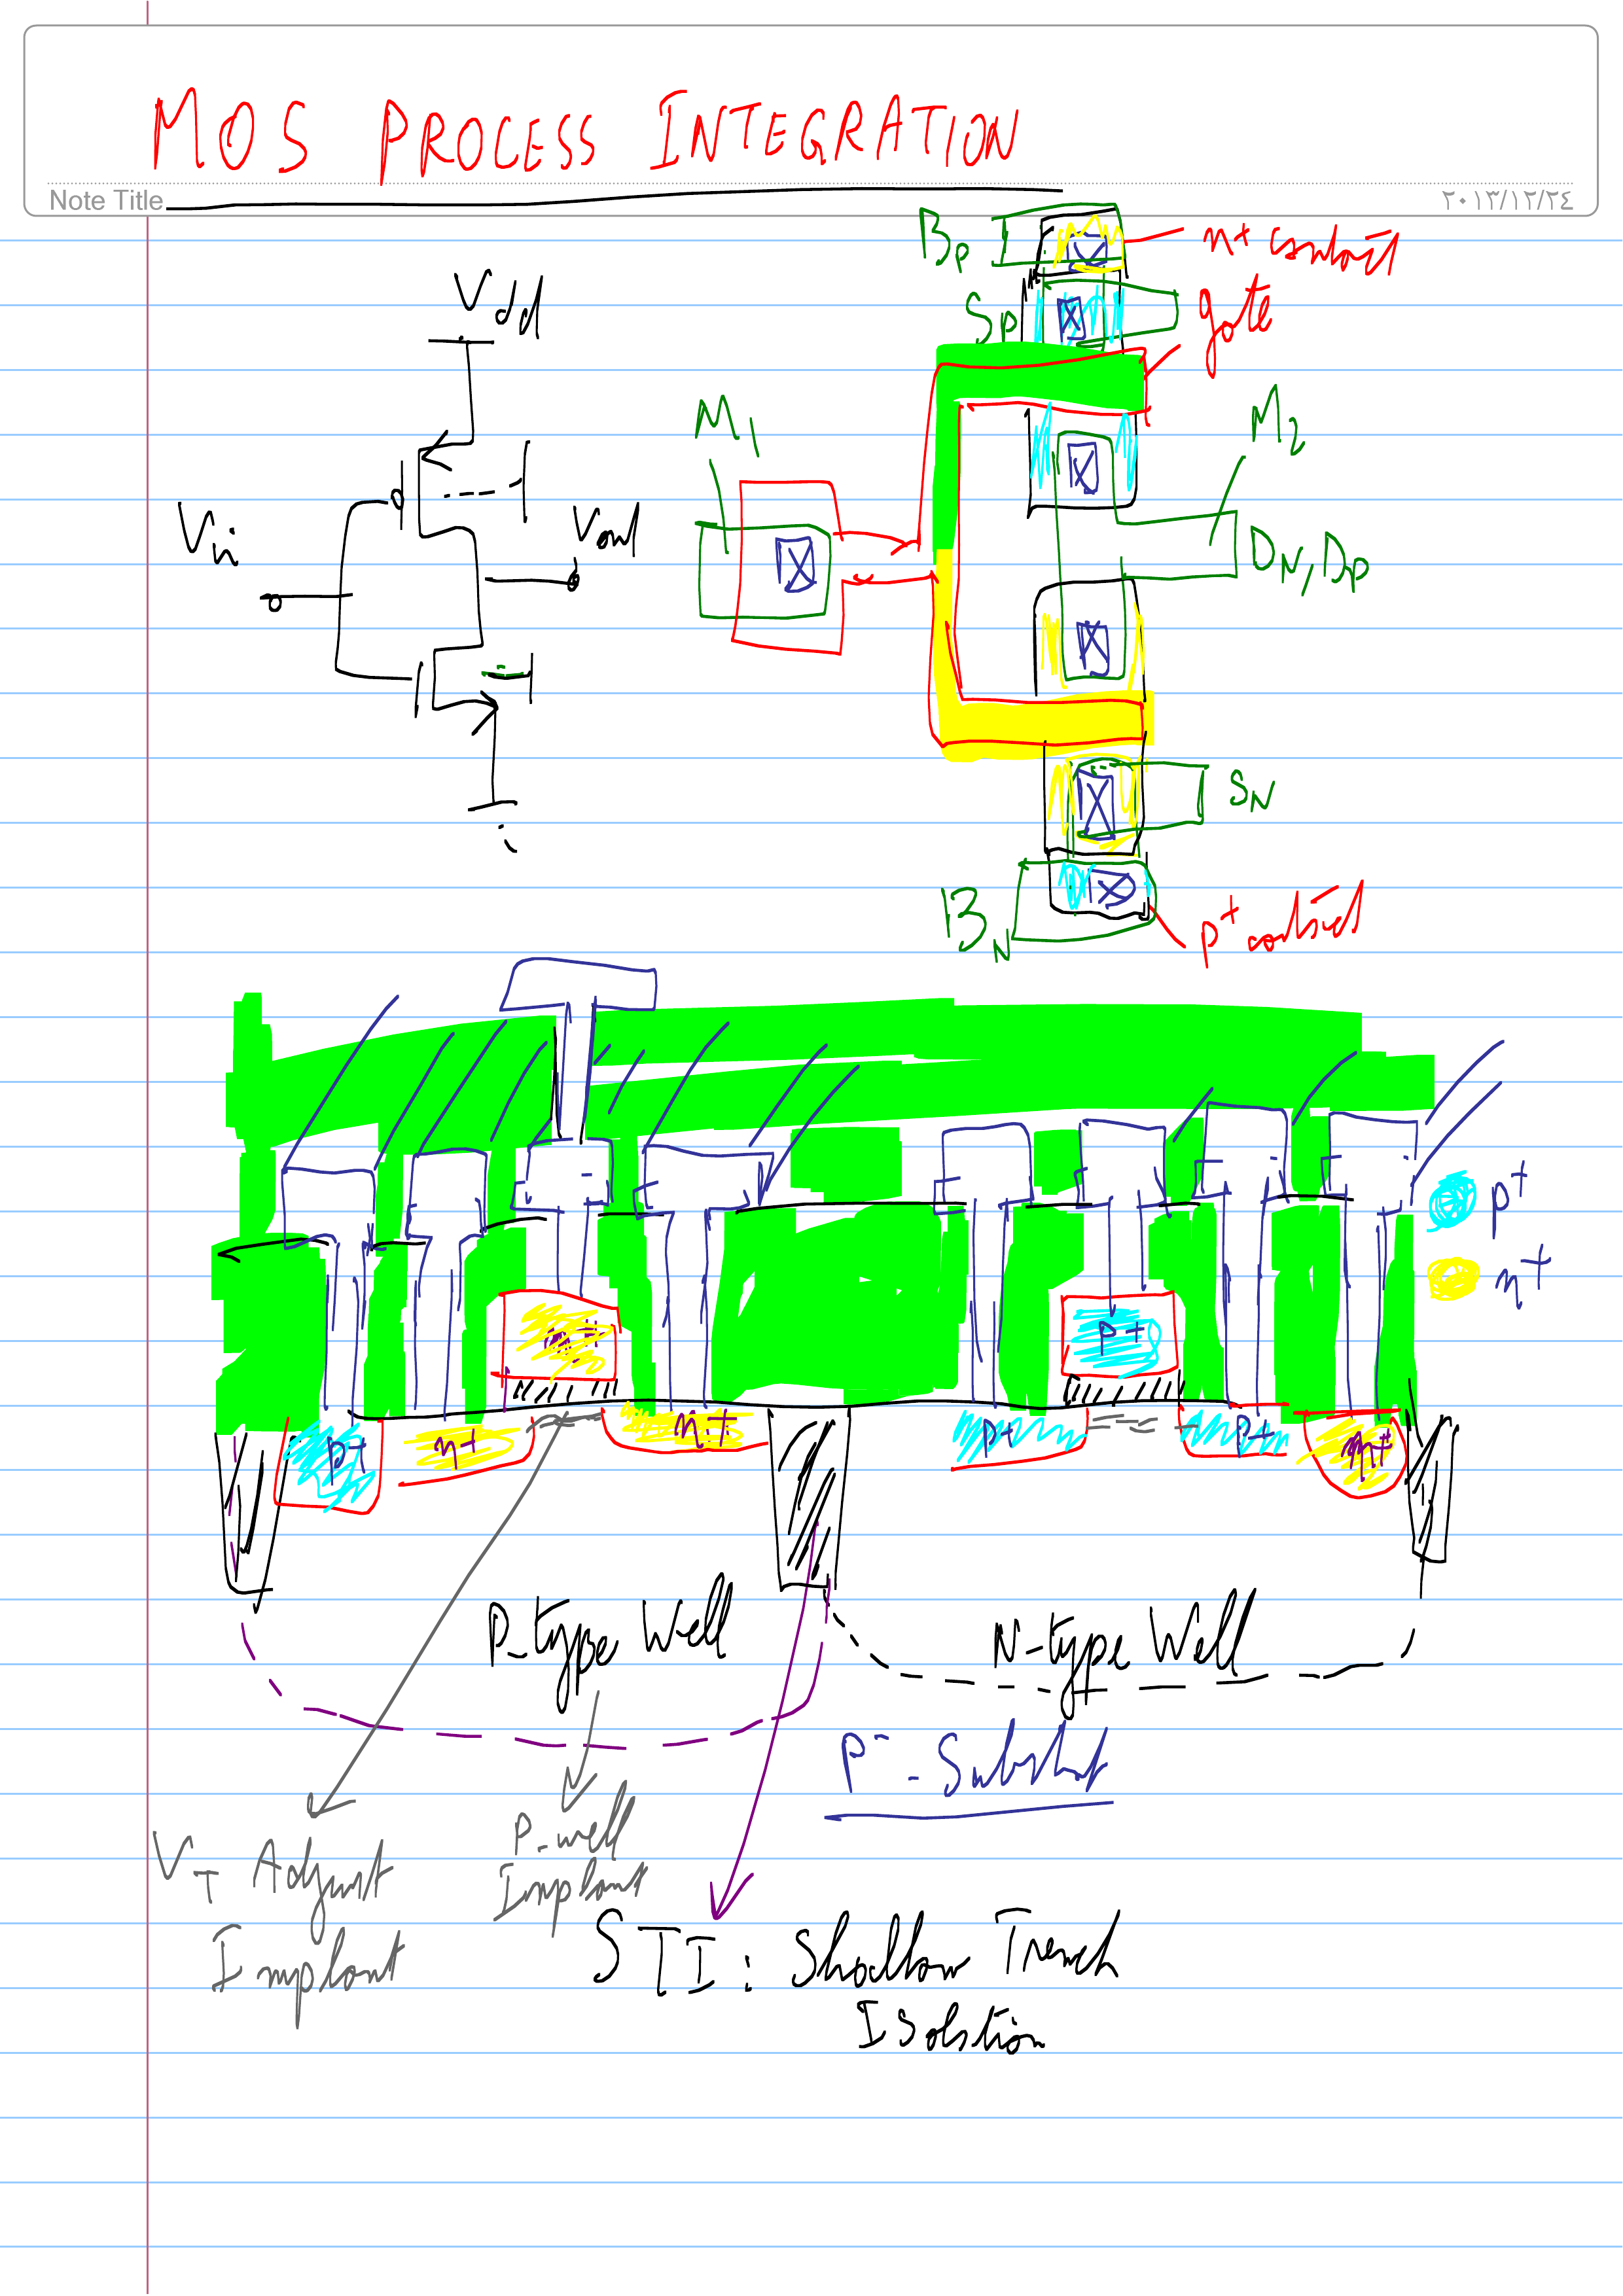 MOS PROCESS INTEGRATION
Note Title
٢٠١٣/١٢/٢٤
Vdd
Vin
Vout
Bp
n+ contact
Sp
gate
M1
M2
DN, Dp
SN
BN
p+ contact
p+
n+
p+
p+
n+
n+
p+
p+
n+
P-type Well
N-type Well
P- - Substrat
VT Adjust
Implant
P-well
Implant
STI: Shallow Trench
Isolation